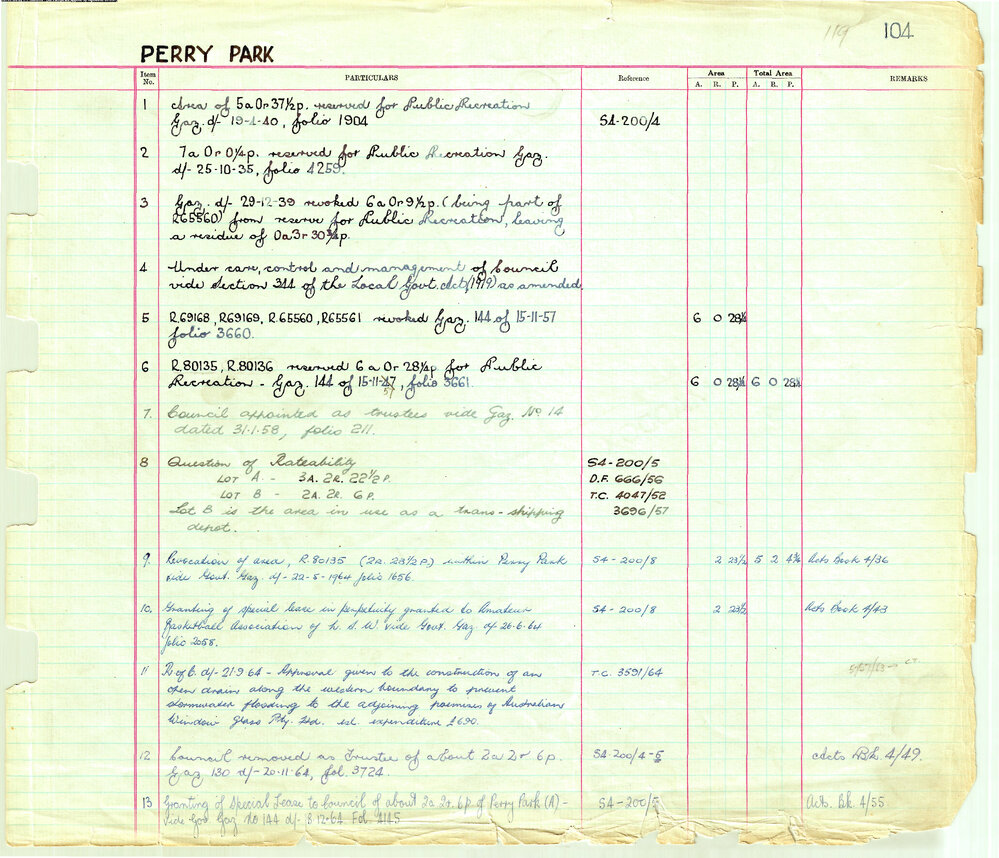 119 104
PERRY PARK
Item No. PARTICULARS Reference Area Total Area REMARKS
A. R. P. A. R. P.
1 Area of 5a 0r 37½p. reserved for Public Recreation
Gaz. d/- 19-4-40, folio 1904 S4-200/4
2 7a 0r 0¼p. reserved for Public Recreation Gaz.
d/- 25-10-35, folio 4259.
3 Gaz. d/- 29-12-39 revoked 6a 0r 9½p. (being part of
R65560) from reserve for Public Recreation, leaving
a residue of 0a 3r 30¾p.
4 Under care, control and management of Council
vide section 344 of the Local Govt. Act, (1919) as amended
5 R.69168, R.69169, R.65560, R.65561 revoked Gaz. 144 of 15-11-57 6 0 28¼
folio 3660.
6 R.80135, R.80136 reserved 6a 0r 28¼p for Public
Recreation - Gaz. 144 of 15-11-57, folio 3661. 6 0 28¼ 6 0 28¼
7. Council appointed as trustees vide Gaz. No 14
dated 31.1.58, folio 211.
8 Question of Rateability S4-200/5
LOT A - 3A. 2R. 22½P. D.F. 666/56
LOT B - 2A. 2R. 6P. T.C. 4047/52
Lot B is the area in use as a trans-shipping 3696/57
depot.
9. Revocation of area, R.80135 (2R. 23½P) within Perry Park S4-200/8 2 23½ 5 2 4¾ Acts Book 4/36
vide Govt. Gaz. d/- 22-5-1964 folio 1656.
10. Granting of special lease in perpetuity granted to Amateur S4-200/8 2 23½ Acts Book 4/43
Basketball Association of N.S.W. vide Govt. Gaz. d/- 26.6.64
folio 2058.
11 R of C. d/- 21.9.64 - Approval given to the construction of an T.C. 3591/64
open drain along the western boundary to prevent
stormwater flooding to the adjoining premises of Australian
Window Glass Pty. Ltd. est. expenditure £690.
12 Council removed as Trustee of about 2a 2r 6p. S4-200/4-5 Acts Bk. 4/49.
Gaz 130 d/- 20-11-64, fol. 3724.
13 Granting of Special Lease to Council of about 2a. 2r. 6p. of Perry Park (A) - S4-200/5 Acts. Bk 4/55
Vide Gov Gaz No 144 d/- 8.12.64 Fol 4145